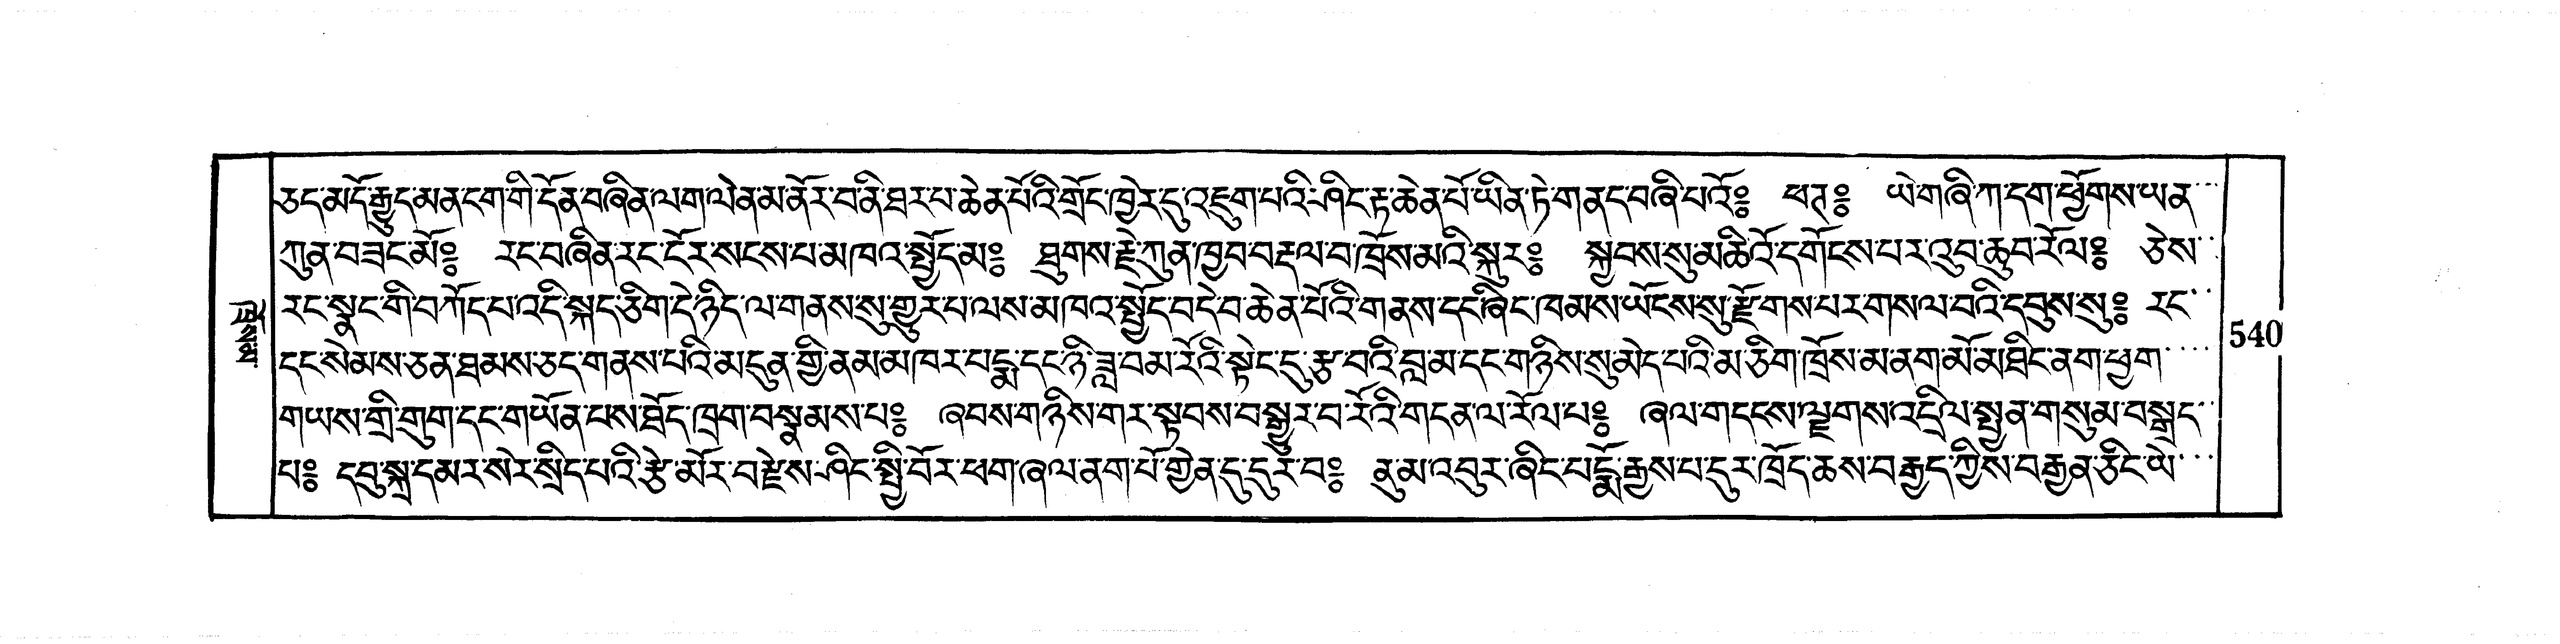 ཅད་མདོ་རྒྱུད་མན་ངག་གི་དོན་བཞིན་ལག་ལེན་མ་ནོར་བ་ནི་ཐར་པ་ཆེན་པོའི་གྲོང་ཁྱེར་དུ་འཇུག་པའི་ཤིང་རྟ་ཆེན་པོ་ཡིན་ཏེ་གནད་བཞི་པའོ༔ ཕཊ༔ ཡེ་གཞི་ཀ་དག་ཕྱོགས་ཡན
ཀུན་བཟང་མོ༔ རང་བཞིན་རང་ངོར་སངས་པ་མ་ཁའ་སྤྱོད་མ༔ ཐུགས་རྗེ་ཀུན་ཁྱབ་བརྡལ་བ་ཁྲོས་མའི་སྐུར༔ སྐྱབས་སུ་མཆིའོ་དགོངས་པར་འུབ་ཆུབ་རོལ༔ ཅེས
རང་སྣང་གི་བཀོད་པ་འདི་སྐད་ཅིག་དེ་ཉིད་ལ་གནས་སུ་གྱུར་པ་ལས་མ་ཁའ་སྤྱོད་བདེ་བ་ཆེན་པོའི་གནས་དང་ཞིང་ཁམས་ཡོངས་སུ་རྫོགས་པར་གསལ་བའི་དབུས་སུ༔ རང
དང་སེམས་ཅན་ཐམས་ཅད་གནས་པའི་མདུན་གྱི་ནམ་མ་ཁར་པདྨ་དང་ཉི་ཟླ་བམ་རོའི་སྟེང་དུ་རྩ་བའི་བླ་མ་དང་གཉིས་སུ་མེད་པའི་མ་ཅིག་ཁྲོས་མ་ནག་མོ་མཐིང་ནག་ཕྱག
གཡས་གྲི་གུག་དང་གཡོན་པས་ཐོད་ཁྲག་བསྣམས་པ༔ ཞབས་གཉིས་གར་སྟབས་བསྒྱུར་བ་རོའི་གདན་ལ་རོལ་པ༔ ཞལ་གདངས་ལྗགས་འདྲིལ་སྤྱན་གསུམ་བསྒྲད
པ༔ དབུ་སྐྲ་དམར་སེར་སྲིད་པའི་རྩེ་མོར་བརྫེས་ཤིང་སྤྱི་བོར་ཕག་ཞལ་ནག་པོ་གྱེན་དུ་དུར་བ༔ ནུ་མ་འབུར་ཞིང་པདྨོ་རྒྱས་པ་དུར་ཁྲོད་ཆས་བརྒྱད་ཀྱིས་བརྒྱན་ཅིང་ཡེ
540